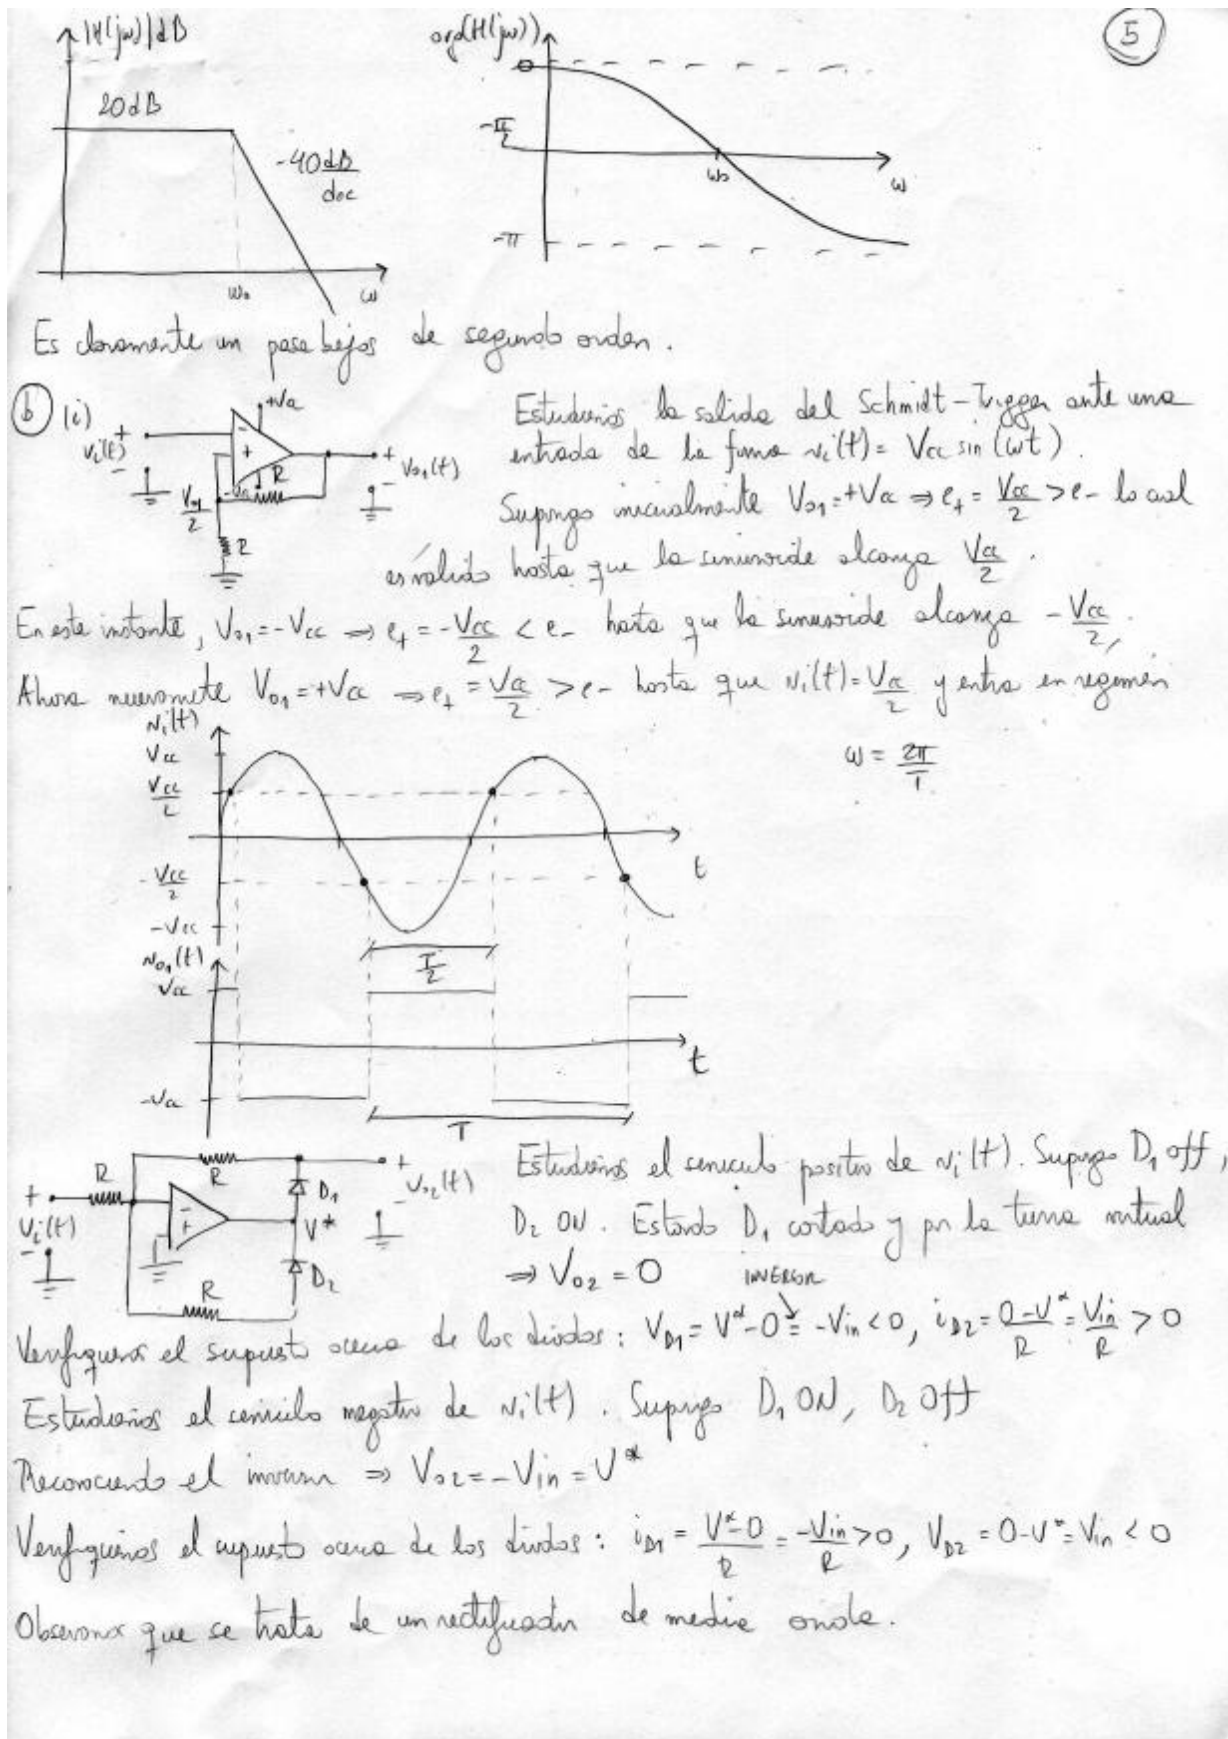 |H(jω)|dB
arg(H(jω))
5
20dB
-40dB/dec
ω₀
ω
0
-π/2
-π
ω₀
ω
Es claramente un pasa bajos de segundo orden.
b (i)
+Vcc
vi(t)
+
-
-
+
R
Vo1/2
R
+
-
vo1(t)
Estudiemos la salida del Schmidt-Trigger ante una
entrada de la forma vi(t) = Vcc sin(ωt).
Supongo inicialmente Vo1=+Vcc ⇒ e+ = Vcc/2 > e- lo cual
es válido hasta que la sinusoide alcanza Vcc/2.
En este instante, Vo1=-Vcc ⇒ e+ = -Vcc/2 < e- hasta que la sinusoide alcanza -Vcc/2,
Ahora nuevamente Vo1=+Vcc ⇒ e+ = Vcc/2 > e- hasta que vi(t)=Vcc/2 y entra en regimen
ω = 2π/T
vi(t)
Vcc
Vcc/2
-Vcc/2
-Vcc
t
T/2
vo1(t)
Vcc
-Vcc
t
T
R
R
+
vi(t)
-
-
+
D1
V*
D2
R
+
vo2(t)
-
Estudiemos el semiciclo positivo de vi(t). Supongo D1 off,
D2 ON. Estando D1 cortado y por la tierra virtual
⇒ Vo2 = 0
INVERSOR
Verifiquemos el supuesto acerca de los diodos: VD1= V*-0 = -Vin<0, iD2= (0-V*)/R = Vin/R > 0
Estudiemos el semiciclo negativo de vi(t). Supongo D1 ON, D2 Off
Reconociendo el inversor ⇒ Vo2=-Vin = V*
Verifiquemos el supuesto acerca de los diodos: iD1 = (V*-0)/R = -Vin/R>0, VD2=0-V*=Vin < 0
Observamos que se trata de un rectificador de media onda.